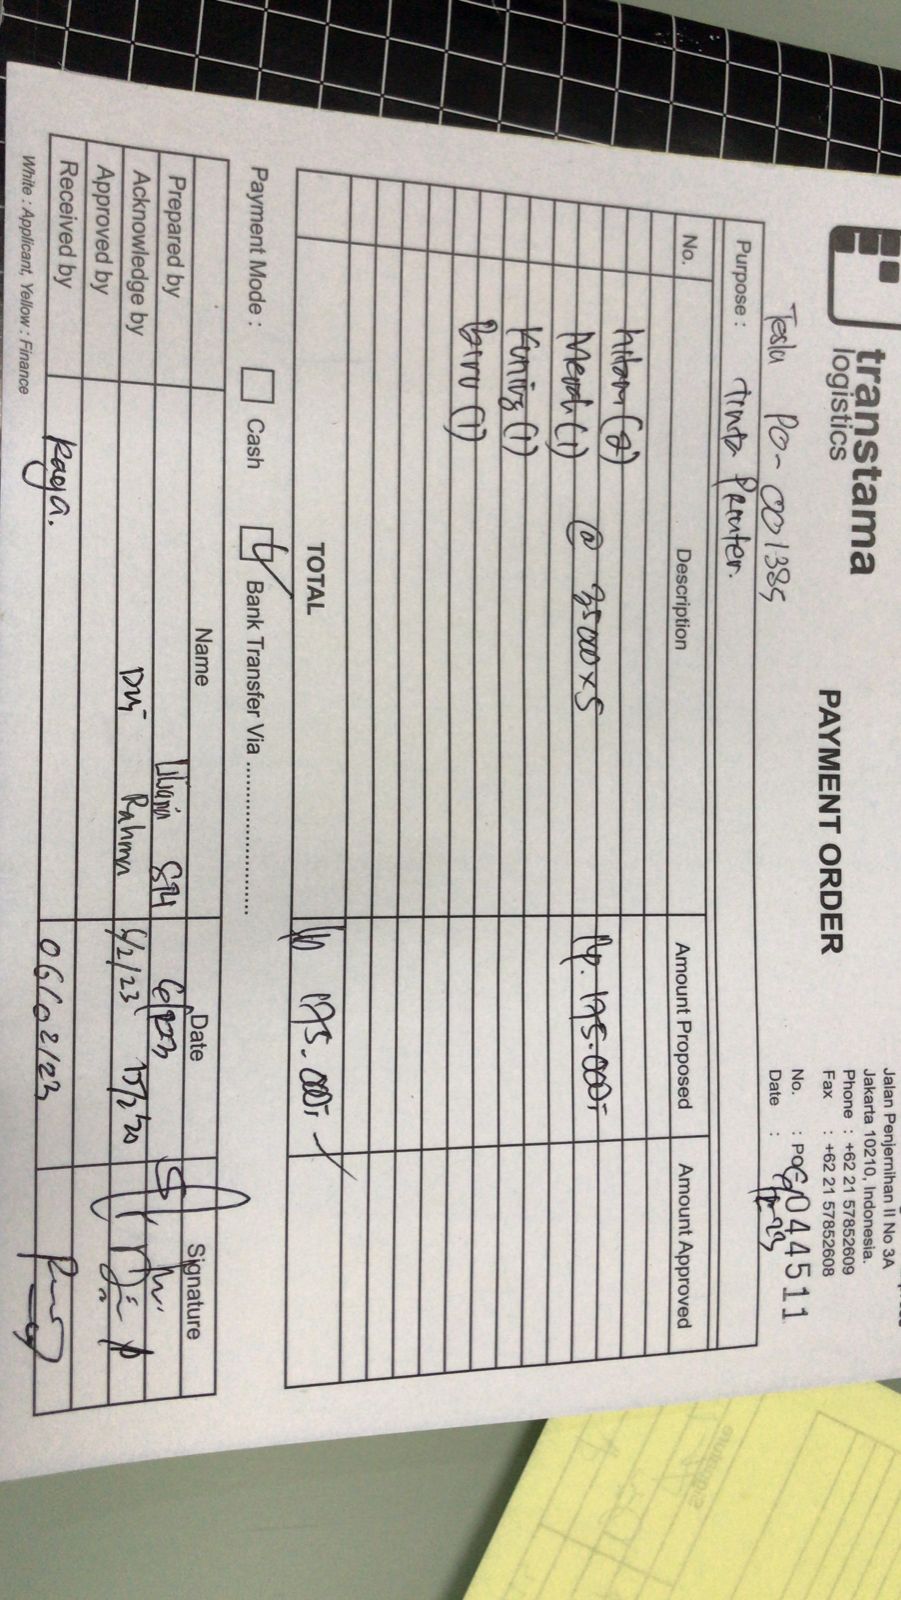 transtama
logistics
PAYMENT ORDER
Jalan Penjernihan II No 3A
Jakarta 10210, Indonesia.
Phone : +62 21 57852609
Fax : +62 21 57852608
No. : POG 044511
Date :
Tesla PO-001389
Purpose : Tinta Printer.
No. Description Amount Proposed Amount Approved
hitam (2)
Merah (1) @ 35000 x 5 Rp. 175.000,-
Kuning (1)
Biru (1)
TOTAL Rp 175.000,-
Payment Mode : Cash Bank Transfer Via ........................
Name Date Signature
Prepared by
Acknowledge by Dwi Rahma 6/2/23
Approved by
Received by Raga. 06/02/23
White : Applicant, Yellow : Finance